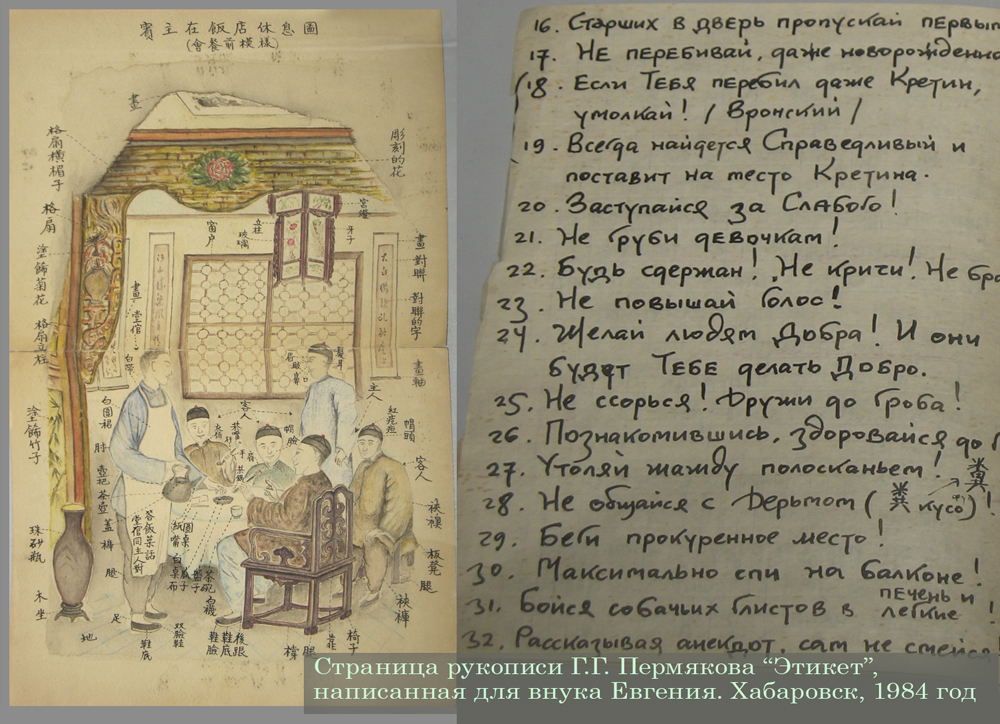 賓主在飯店休息圖
(會餐前模樣)
畫
格扇橫楣子
彫刻的花
格扇
宮燈
立柱
牙子
窗户
玻璃
塗飾菊花
畫
對聯
畫
堂倌
對聯的字
格扇立柱
白帶
眉
眼
鼻
口
髮
耳
畫軸
主人
白圍裙
客人
紅疙疸
帽頭
塗飾竹子
肘
帽臉
客人
壺把
茶壺
蓋
褲
珠砂瓶
答飯菜話
堂倌同主人對
紙
嘴
圓桌
白桌布
瓜子
碟子
茶碗
板凳
腿
腿
木坐
白襪
袂褲
足
地
鞋底
双臉鞋
鞋臉
鞋底
後跟
褲
腿
靠
椅子
16. Старших в дверь пропускай первым
17. Не перебивай, даже новорожденно
18. Если Тебя перебил даже Кретин,
умолкай! / Вронский /
19. Всегда найдется Справедливый и
поставит на место Кретина.
20. Заступайся за Слабого!
21. Не груби девочкам!
22. Будь сдержан! Не кричи! Не бра
23. Не повышай голос!
24. Желай людям Добра! И они
будут ТЕБЕ делать Добро.
25. Не ссорься! Дружи до гроба!
26. Познакомившись, здоровайся до
27. Утоляй жажду полосканьем!
28. Не общайся с Дерьмом (糞 кусо)! 糞
29. Беги прокуренное место!
30. Максимально спи на балконе!
31. Бойся собачьих глистов в печень и легкие!
32. Рассказывая анекдот, сам не смейся!
Страница рукописи Г.Г. Пермякова “Этикет”,
написанная для внука Евгения. Хабаровск, 1984 год